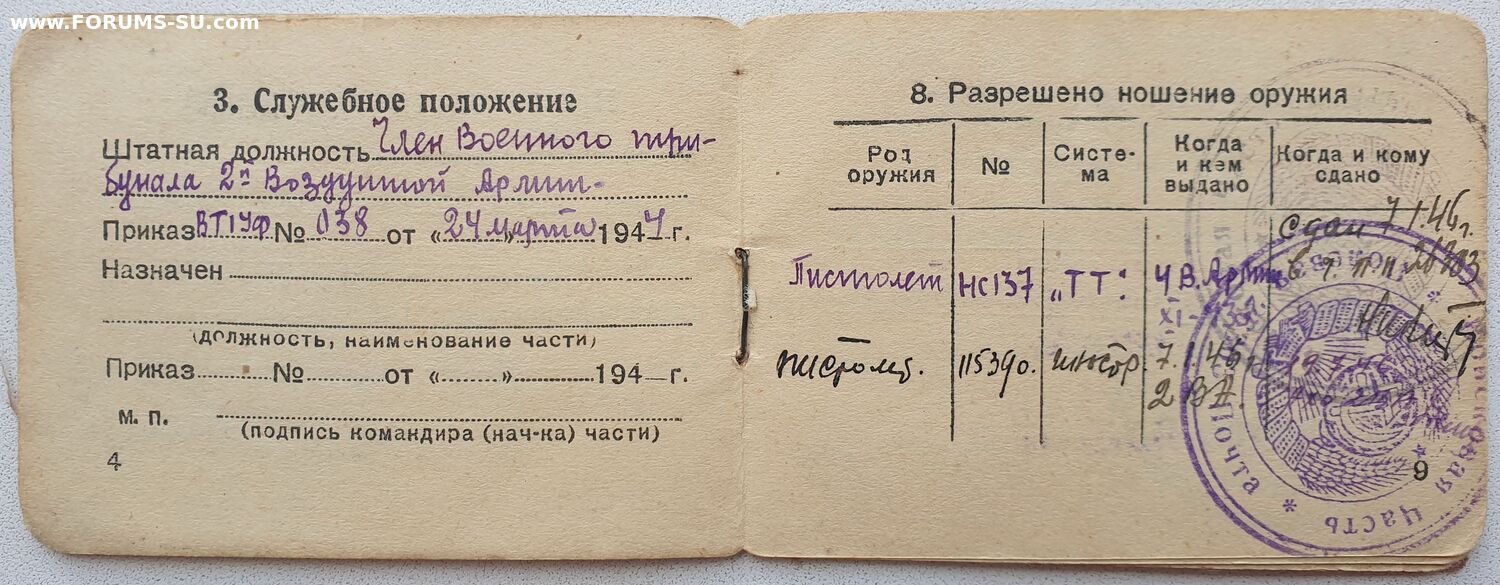 www.FORUMS-SU.com
3. Служебное положение
Штатная должность Член Военного три-
бунала 2й Воздушной Армии.
Приказ ВТ1УФ № 038 от «24» марта 1944 г.
Назначен
(должность, наименование части)
Приказ № от « » 194 г.
м. п.
(подпись командира (нач-ка) части)
4
8. Разрешено ношение оружия
Род оружия
№
Систе-
ма
Когда
и кем
выдано
Когда и кому
сдано
Пистолет НС137 „ТТ".
Сдан 7.1.46г.
в ч. п.п.
пистолет. 115390. иностр. 7.1.46
2 ВА.
почта
часть
9